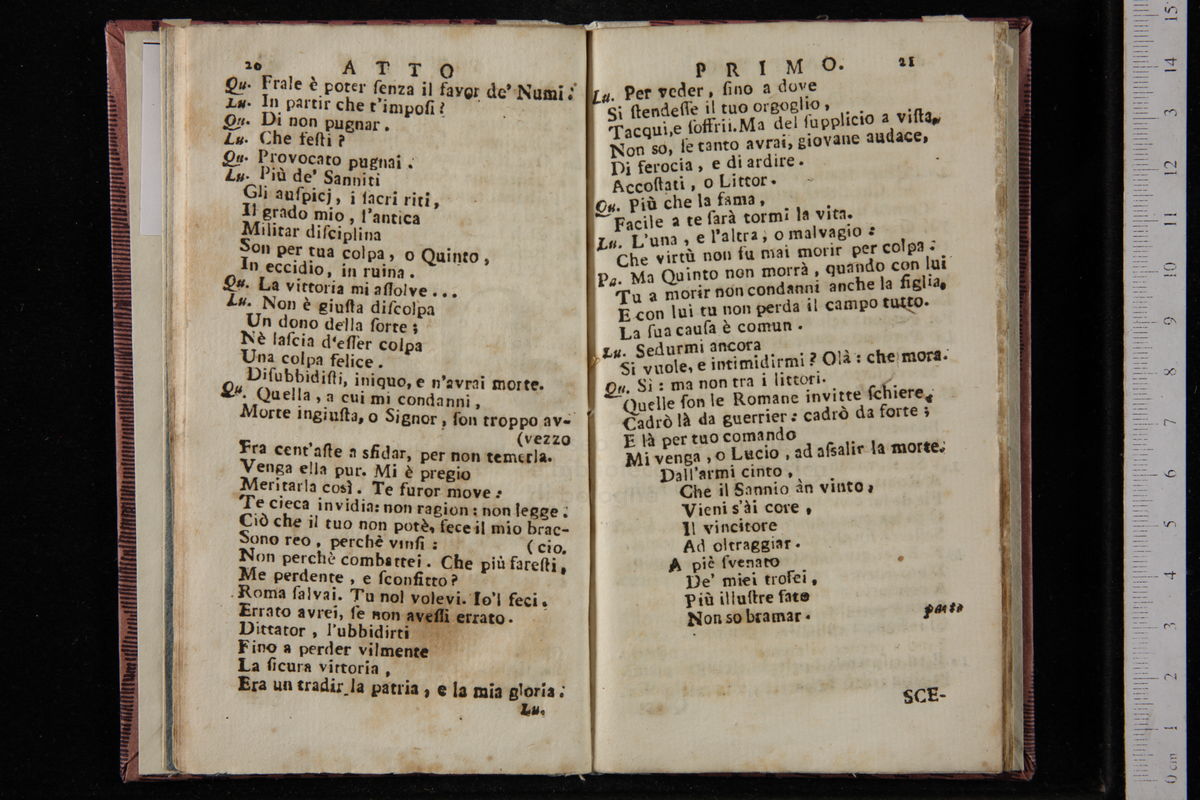 20 ATTO
Qu. Frale è poter ſenza il favor de' Numi.
Lu. In partir che t'impoſi?
Qu. Di non pugnar.
Lu. Che feſti?
Qu. Provocato pugnai.
Lu. Più de' Sanniti
Gli auſpicj, i ſacri riti,
Il grado mio, l'antica
Militar diſciplina
Son per tua colpa, o Quinto,
In eccidio, in ruina.
Qu. La vittoria mi aſſolve...
Lu. Non è giuſta diſcolpa
Un dono della ſorte;
Nè laſcia d'eſſer colpa
Una colpa felice.
Diſubbidiſti, iniquo, e n'avrai morte.
Qu. Quella, a cui mi condanni,
Morte ingiuſta, o Signor, ſon troppo av-
(vezzo
Fra cent'aſte a sfidar, per non temerla.
Venga ella pur. Mi è pregio
Meritarla così. Te furor move:
Te cieca invidia: non ragion: non legge.
Ciò che il tuo non potè, fece il mio brac-
Sono reo, perchè vinſi: (cio.
Non perchè combattei. Che più fareſti,
Me perdente, e ſconfitto?
Roma ſalvai. Tu nol volevi. Io'l feci.
Errato avrei, ſe non aveſſi errato.
Dittator, l'ubbidirti
Fino a perder vilmente
La ſicura vittoria,
Era un tradir la patria, e la mia gloria.
Lu.
PRIMO. 21
Lu. Per veder, ſino a dove
Si ſtendeſſe il tuo orgoglio,
Tacqui, e ſoffrii. Ma del ſupplicio a viſta,
Non so, ſe tanto avrai, giovane audace,
Di ferocia, e di ardire.
Accoſtati, o Littor.
Qu. Più che la fama,
Facile a te ſarà tormi la vita.
Lu. L'una, e l'altra, o malvagio:
Che virtù non fu mai morir per colpa.
Pa. Ma Quinto non morrà, quando con lui
Tu a morir non condanni anche la figlia,
E con lui tu non perda il campo tutto.
La ſua cauſa è comun.
Lu. Sedurmi ancora
Si vuole, e intimidirmi? Olà: che mora.
Qu. Sì: ma non tra i littori.
Quelle ſon le Romane invitte ſchiere.
Cadrò là da guerrier: cadrò da forte;
E là per tuo comando
Mi venga, o Lucio, ad aſsalir la morte.
Dall'armi cinto,
Che il Sannio àn vinto,
Vieni s'ài core,
Il vincitore
Ad oltraggiar.
A piè ſvenato
De' miei trofei,
Più illuſtre fato
Non so bramar. parte
SCE-
0 cm 1 2 3 4 5 6 7 8 9 10 11 12 13 14 15